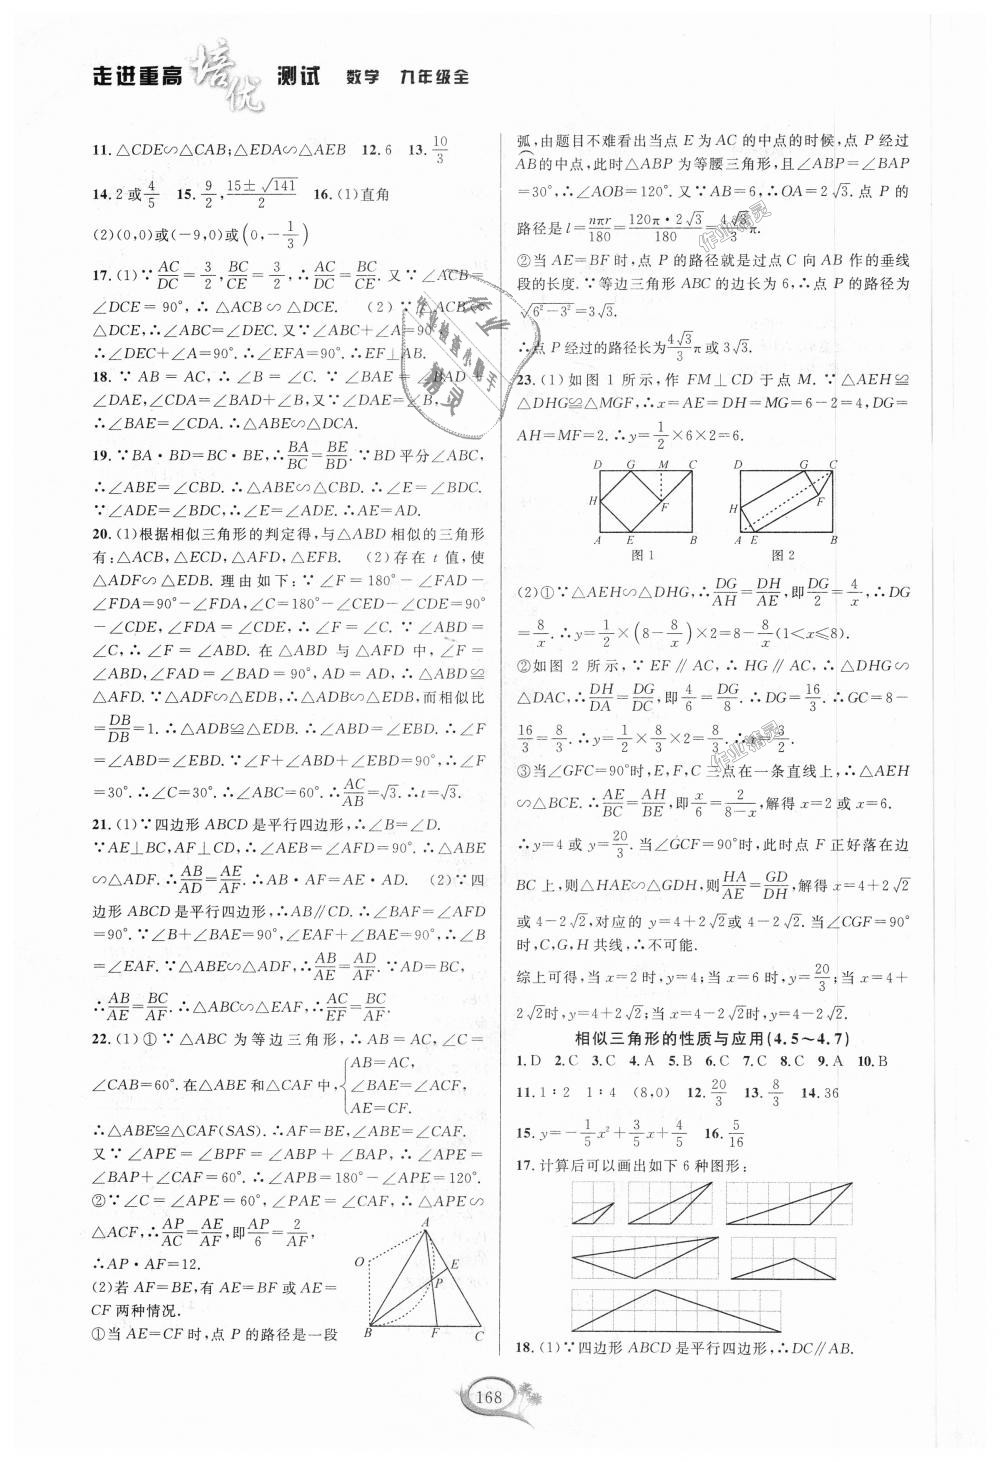 走进重高 培优 测试 数学 九年级全
11.△CDE∽△CAB;△EDA∽△AEB 12.6 13.10/3
14.2或4/5 15.9/2,(15±√141)/2 16.(1)直角
(2)(0,0)或(-9,0)或(0,-1/3)
17.(1)∵AC/DC=3/2,BC/CE=3/2,∴AC/DC=BC/CE.又∵∠ACB=
∠DCE=90°,∴△ACB∽△DCE. (2)∵△ACB∽
△DCE,∴∠ABC=∠DEC.又∵∠ABC+∠A=90°,
∴∠DEC+∠A=90°.∴∠EFA=90°.∴EF⊥AB.
18.∵AB=AC,∴∠B=∠C.∵∠BAE=∠BAD+
∠DAE,∠CDA=∠BAD+∠B,又∵∠DAE=∠B,
∴∠BAE=∠CDA.∴△ABE∽△DCA.
19.∵BA·BD=BC·BE,∴BA/BC=BE/BD.∵BD平分∠ABC,
∴∠ABE=∠CBD.∴△ABE∽△CBD.∴∠E=∠BDC.
∵∠ADE=∠BDC,∴∠E=∠ADE.∴AE=AD.
20.(1)根据相似三角形的判定得,与△ABD相似的三角形
有:△ACB,△ECD,△AFD,△EFB. (2)存在t值,使
△ADF∽△EDB.理由如下:∵∠F=180°-∠FAD-
∠FDA=90°-∠FDA,∠C=180°-∠CED-∠CDE=90°
-∠CDE,∠FDA=∠CDE,∴∠F=∠C.∵∠ABD=
∠C,∴∠F=∠ABD.在△ABD与△AFD中,∠F=
∠ABD,∠FAD=∠BAD=90°,AD=AD,∴△ABD≌
△AFD.∵△ADF∽△EDB,∴△ADB∽△EDB,而相似比
=DB/DB=1.∴△ADB≌△EDB.∴∠ABD=∠EBD.∴∠F
=∠ABD=∠EBD.∵∠F+∠ABD+∠EBD=90°,∴∠F
=30°.∴∠C=30°.∴∠CBA=60°.∴AC/AB=√3.∴t=√3.
21.(1)∵四边形ABCD是平行四边形,∴∠B=∠D.
∵AE⊥BC,AF⊥CD,∴∠AEB=∠AFD=90°.∴△ABE
∽△ADF.∴AB/AD=AE/AF.∴AB·AF=AE·AD. (2)∵四
边形ABCD是平行四边形,∴AB∥CD.∴∠BAF=∠AFD
=90°.∵∠B+∠BAE=90°,∠EAF+∠BAE=90°,∴∠B
=∠EAF.∵△ABE∽△ADF,∴AB/AE=AD/AF.∵AD=BC,
∴AB/AE=BC/AF.∴△ABC∽△EAF.∴AC/EF=BC/AF.
22.(1)①∵△ABC为等边三角形,∴AB=AC,∠C=
∠CAB=60°.在△ABE和△CAF中,{AB=AC,
∠BAE=∠ACF,
AE=CF.
∴△ABE≌△CAF(SAS).∴AF=BE,∠ABE=∠CAF.
又∵∠APE=∠BPF=∠ABP+∠BAP,∴∠APE=
∠BAP+∠CAF=60°.∴∠APB=180°-∠APE=120°.
②∵∠C=∠APE=60°,∠PAE=∠CAF,∴△APE∽
△ACF,∴AP/AC=AE/AF,即AP/6=2/AF,
∴AP·AF=12.
(2)若AF=BE,有AE=BF或AE=
CF两种情况.
①当AE=CF时,点P的路径是一段
A
O
E
P
B F C
弧,由题目不难看出当点E为AC的中点的时候,点P经过
AB的中点,此时△ABP为等腰三角形,且∠ABP=∠BAP
=30°,∴∠AOB=120°.又∵AB=6,∴OA=2√3.点P的
路径是l=nπr/180=120π·2√3/180=4√3/3π.
②当AE=BF时,点P的路径就是过点C向AB作的垂线
段的长度.∵等边三角形ABC的边长为6,∴点P的路径为
√(6²-3²)=3√3.
∴点P经过的路径长为4√3/3π或3√3.
23.(1)如图1所示,作FM⊥CD于点M.∵△AEH≌
△DHG≌△MGF,∴x=AE=DH=MG=6-2=4,DG=
AH=MF=2.∴y=1/2×6×2=6.
D G M C
H
F
A E B
图1
D G C
H
F
A E B
图2
(2)①∵△AEH∽△DHG,∴DG/AH=DH/AE,即DG/2=4/x,∴DG
=8/x.∴y=1/2×(8-8/x)×2=8-8/x(1<x≤8).
②如图2所示,∵EF∥AC,∴HG∥AC,∴△DHG∽
△DAC,∴DH/DA=DG/DC,即4/6=DG/8.∴DG=16/3.∴GC=8-
16/3=8/3.∴y=1/2×8/3×2=8/3.∴x=3/2.
③当∠GFC=90°时,E,F,C三点在一条直线上,∴△AEH
∽△BCE.∴AE/BC=AH/BE,即x/6=2/(8-x),解得x=2或x=6.
∴y=4或y=20/3.当∠GCF=90°时,此时点F正好落在边
BC上,则△HAE∽△GDH,则HA/AE=GD/DH,解得x=4+2√2
或4-2√2,对应的y=4+2√2或4-2√2.当∠CGF=90°
时,C,G,H共线,∴不可能.
综上可得,当x=2时,y=4;当x=6时,y=20/3;当x=4+
2√2时,y=4+2√2;当x=4-2√2时,y=4-2√2.
相似三角形的性质与应用(4.5~4.7)
1.D 2.C 3.C 4.A 5.B 6.C 7.C 8.C 9.A 10.B
11.1∶2 1∶4 (8,0) 12.20/3 13.8/3 14.36
15.y=-1/5x²+3/5x+4/5 16.5/16
17.计算后可以画出如下6种图形:
18.(1)∵四边形ABCD是平行四边形,∴DC∥AB.
168